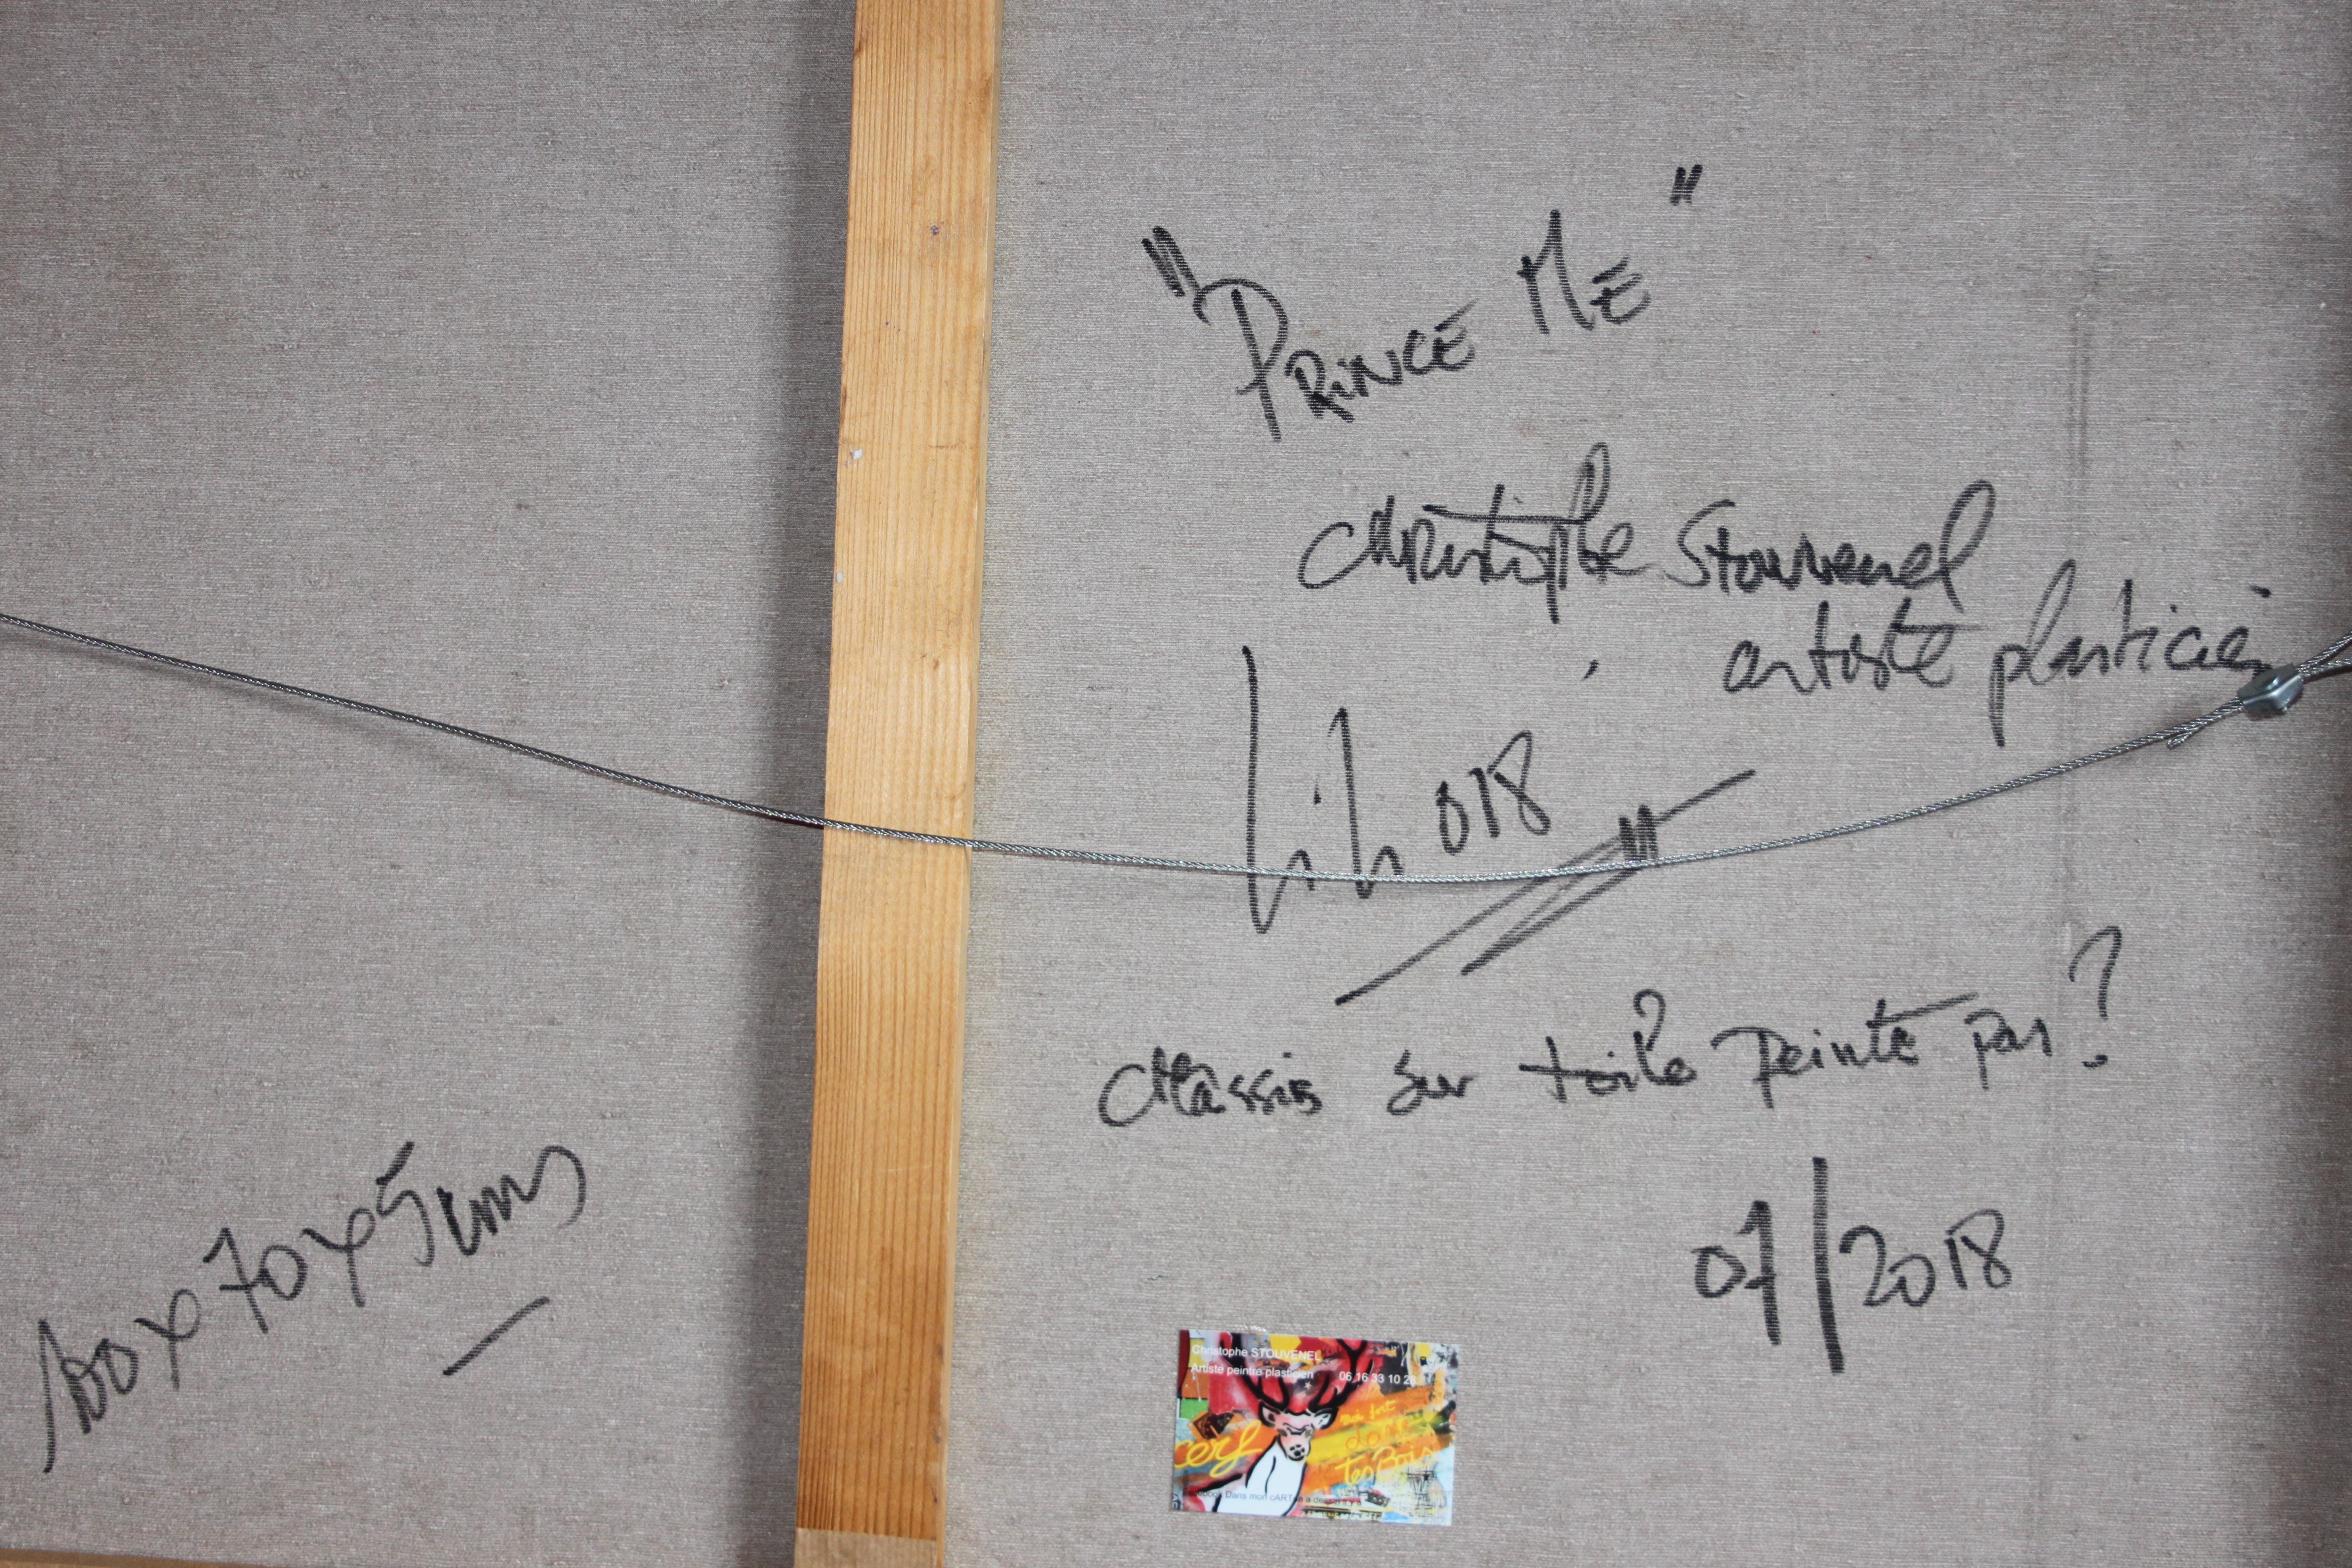 "PRINCE ME"
Christophe Stouvenel
artiste plasticien
018
Chassis sur toile peinte par ?
07/2018
100x70x5cms
Christophe STOUVENEL
Artiste peintre plasticien 06 16 33 10
cerf
moi fort
tes Bois
Dans mon cART